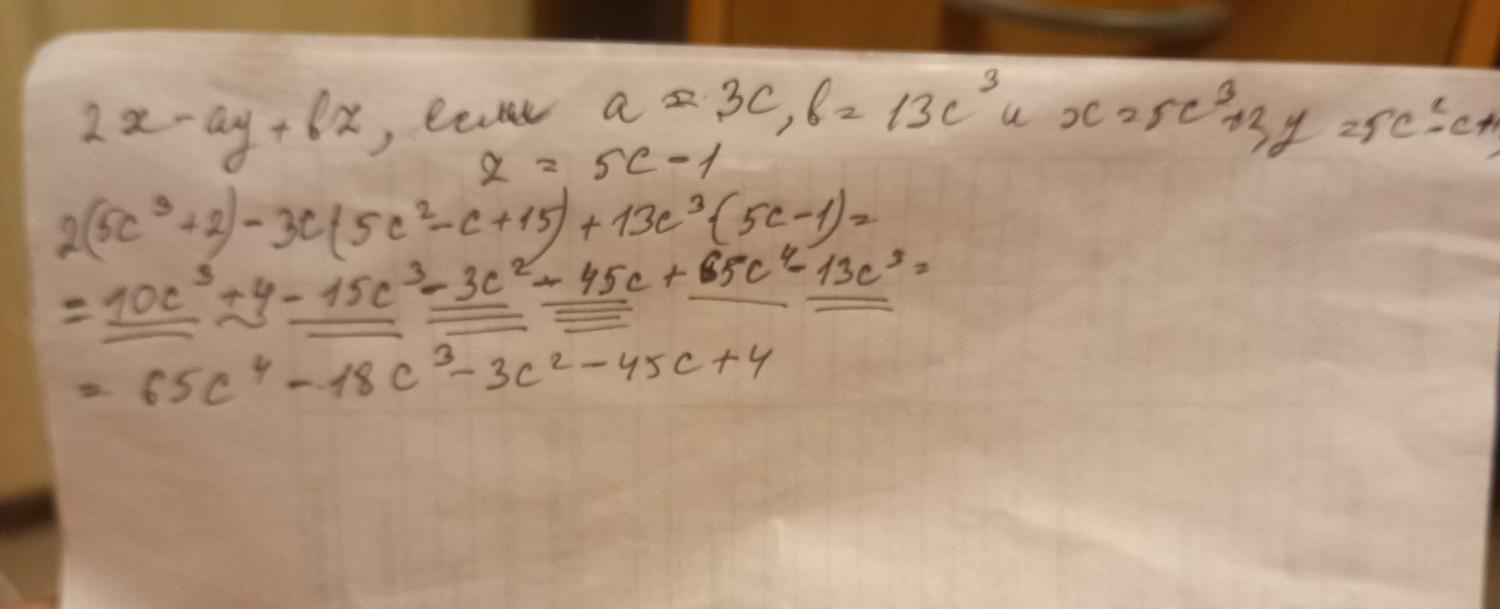 2x - ay + bz, если a = 3c, b = 13c³ и x = 5c³+2, y = 5c² - c +
z = 5c - 1
2(5c³ + 2) - 3c(5c² - c + 15) + 13c³(5c - 1) =
= 10c³ + 4 - 15c³ - 3c² - 45c + 65c⁴ - 13c³ =
= 65c⁴ - 18c³ - 3c² - 45c + 4